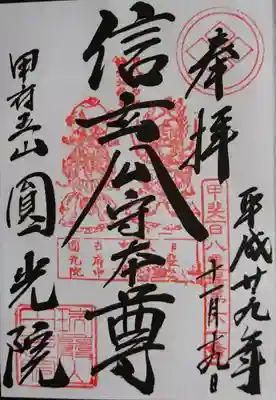 奉拝
平成廿九年
十一月十九日
信玄公守本尊
甲府五山
圓光院
甲斐百八